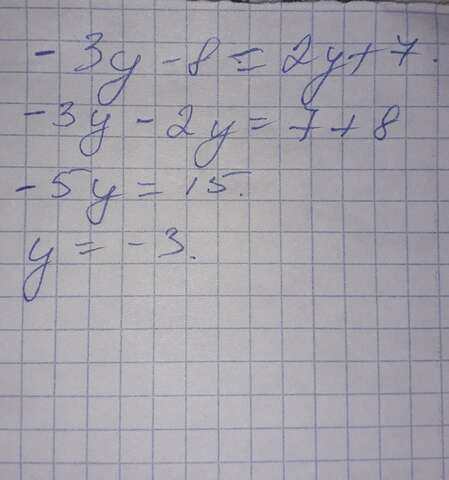 - 3y - 8 = 2y + 7.
- 3y - 2y = 7 + 8
- 5y = 15.
y = - 3.